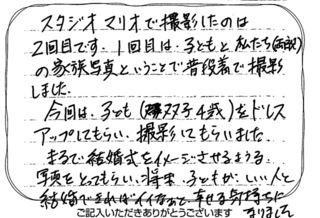 スタジオマリオで撮影したのは
2回目です。1回目は、子どもと私たち(両親)
の家族写真ということで普段着で撮影
しました。
今回は、子ども(双子4歳)をドレス
アップしてもらい、撮影してもらいました。
まるで結婚式をイメージさせるような
写真をとってもらい、将来、子どもが、いい人と
結婚できればイイなぁて、幸せな気持ちに
なりました
ご記入いただきありがとうございます